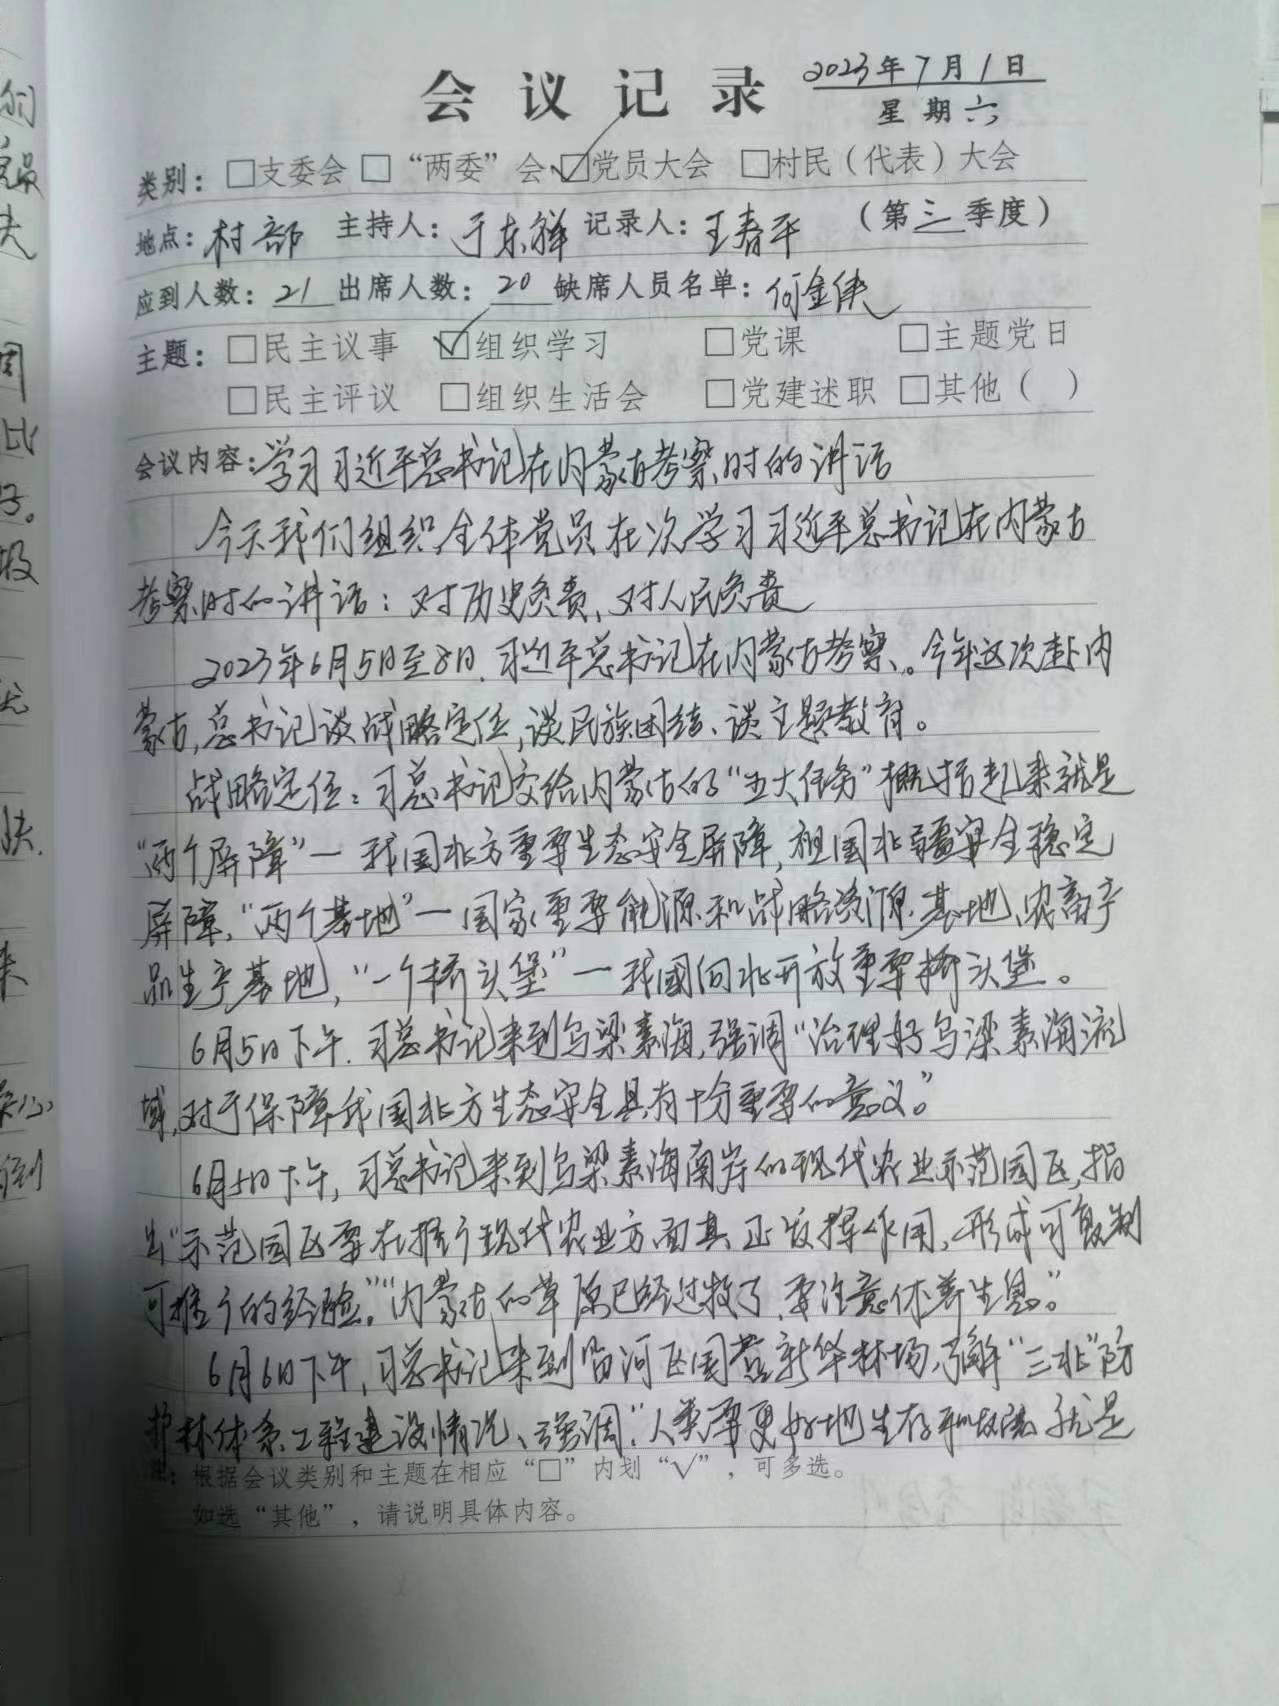 会议记录 2023年7月1日
星期六
类别：□支委会 □“两委”会 ☑党员大会 □村民（代表）大会
地点：村部 主持人：于东祥 记录人：王春平 （第三季度）
应到人数：21 出席人数：20 缺席人员名单：何金侠
主题：□民主议事 ☑组织学习 □党课 □主题党日
□民主评议 □组织生活会 □党建述职 □其他（ ）
会议内容：学习习近平总书记在内蒙古考察时的讲话
今天我们组织全体党员在次学习习近平总书记在内蒙古
考察时的讲话：对历史负责、对人民负责
2023年6月5日至8日，习近平总书记在内蒙古考察。今年这次赴内
蒙古，总书记谈战略定位，谈民族团结、谈主题教育。
战略定位：习总书记交给内蒙古的“五大任务”概括起来就是
“两个屏障”一我国北方重要生态安全屏障，祖国北疆安全稳定
屏障，“两个基地”一国家重要能源和战略资源基地、农畜产
品生产基地，“一个桥头堡”一我国向北开放重要桥头堡。
6月5日下午，习总书记来到乌梁素海，强调“治理好乌梁素海流
域，对于保障我国北方生态安全具有十分重要的意义。”
6月5日下午，习总书记来到乌梁素海南岸的现代农业示范园区，指
出“示范园区要在推广现代农业方面真正发挥作用，形成可复制
可推广的经验。”“内蒙古的草原已经过牧了，要注意休养生息。”
6月6日下午，习总书记来到临河区国营新华林场，了解“三北”防
护林体系工程建设情况、强调：“人类要更好地生存和发展就是
注：根据会议类别和主题在相应“□”内划“√”，可多选。
如选“其他”，请说明具体内容。